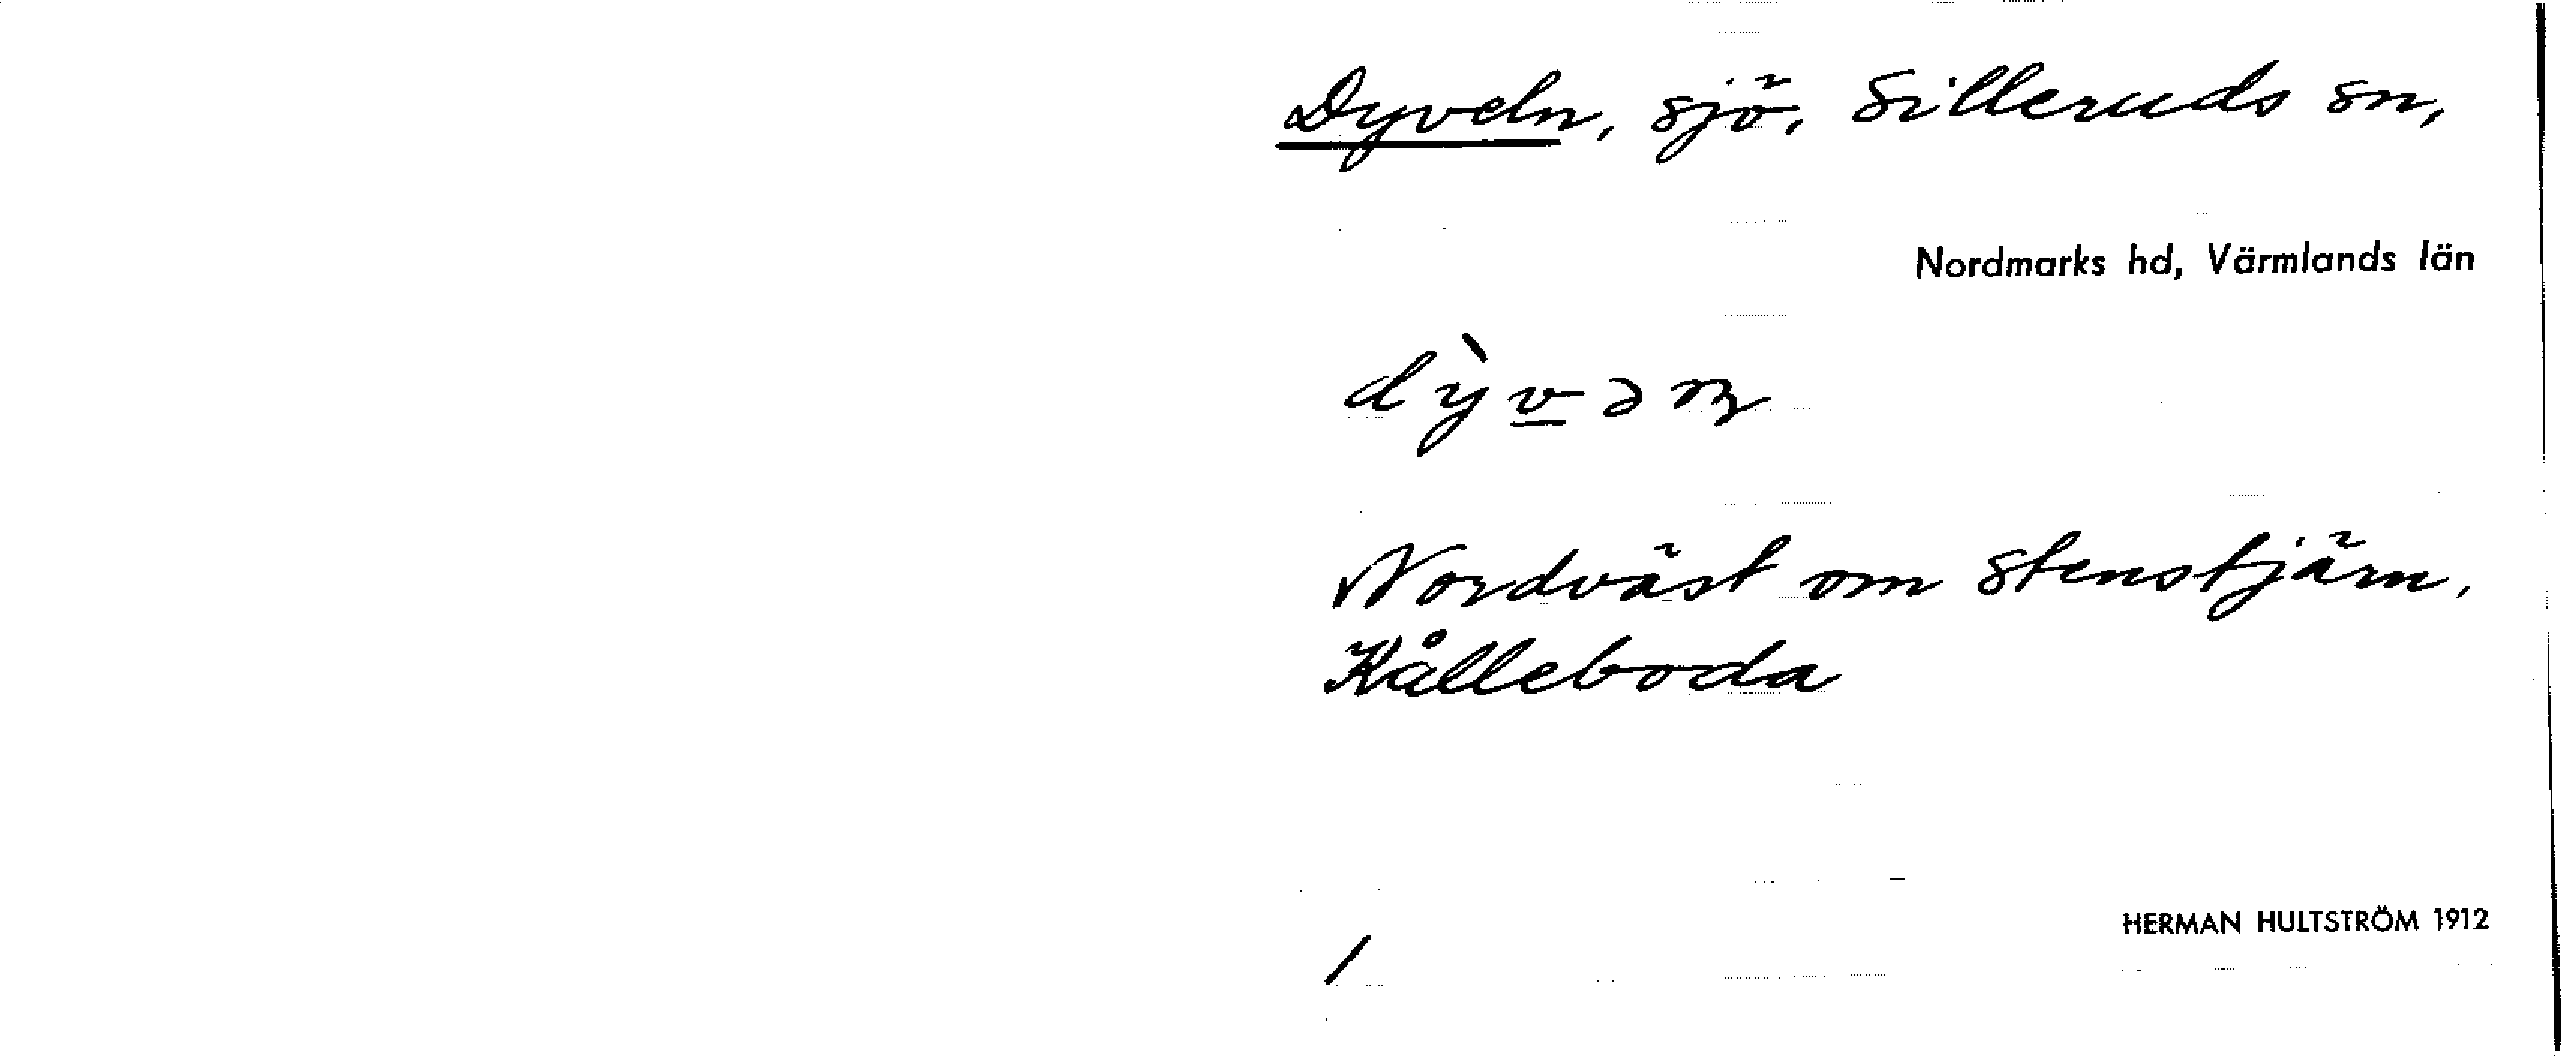 Dyveln, sjö, Silleruds sn,
Nordmarks hd, Värmlands län
dỳvəɳ
Nordväst om Stenstjärn,
Kålleboda
HERMAN HULTSTRÖM 1912
/